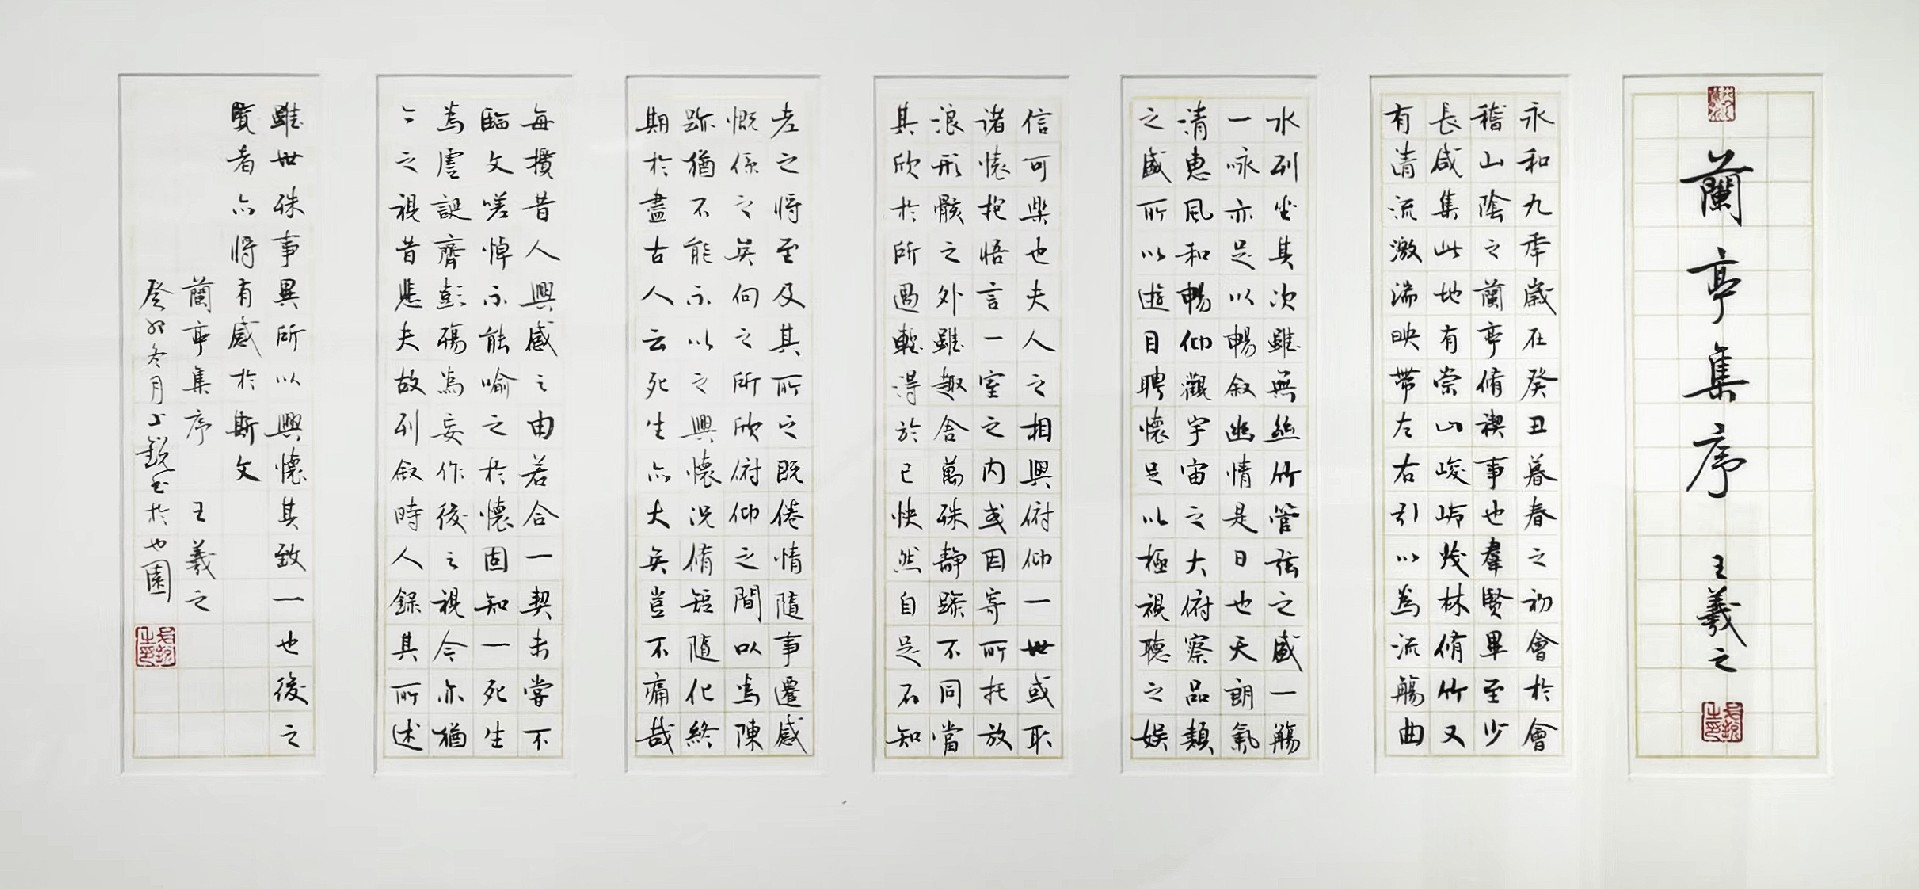 蘭亭集序 王羲之
永和九年歲在癸丑暮春之初會於會
稽山陰之蘭亭脩禊事也羣賢畢至少
長咸集此地有崇山峻嶺茂林脩竹又
有清流激湍映帶左右引以為流觴曲
水列坐其次雖無絲竹管弦之盛一觴
一咏亦足以暢叙幽情是日也天朗氣
清惠風和暢仰觀宇宙之大俯察品類
之盛所以遊目騁懷足以極視聽之娛
信可樂也夫人之相與俯仰一世或取
諸懷抱悟言一室之內或因寄所托放
浪形骸之外雖趣舍萬殊靜躁不同當
其欣於所遇輒得於己快然自足不知
老之將至及其所之既倦情隨事遷感
慨係之矣向之所欣俯仰之間以為陳
跡猶不能不以之興懷況脩短隨化終
期於盡古人云死生亦大矣豈不痛哉
每攬昔人興感之由若合一契未嘗不
臨文嗟悼不能喻之於懷固知一死生
為虛誕齊彭殤為妄作後之視今亦猶
〻之視昔悲夫故列叙時人錄其所述
雖世殊事異所以興懷其致一也後之
覽者亦將有感於斯文
蘭亭集序 王羲之
癸卯冬月丁銳書於也園